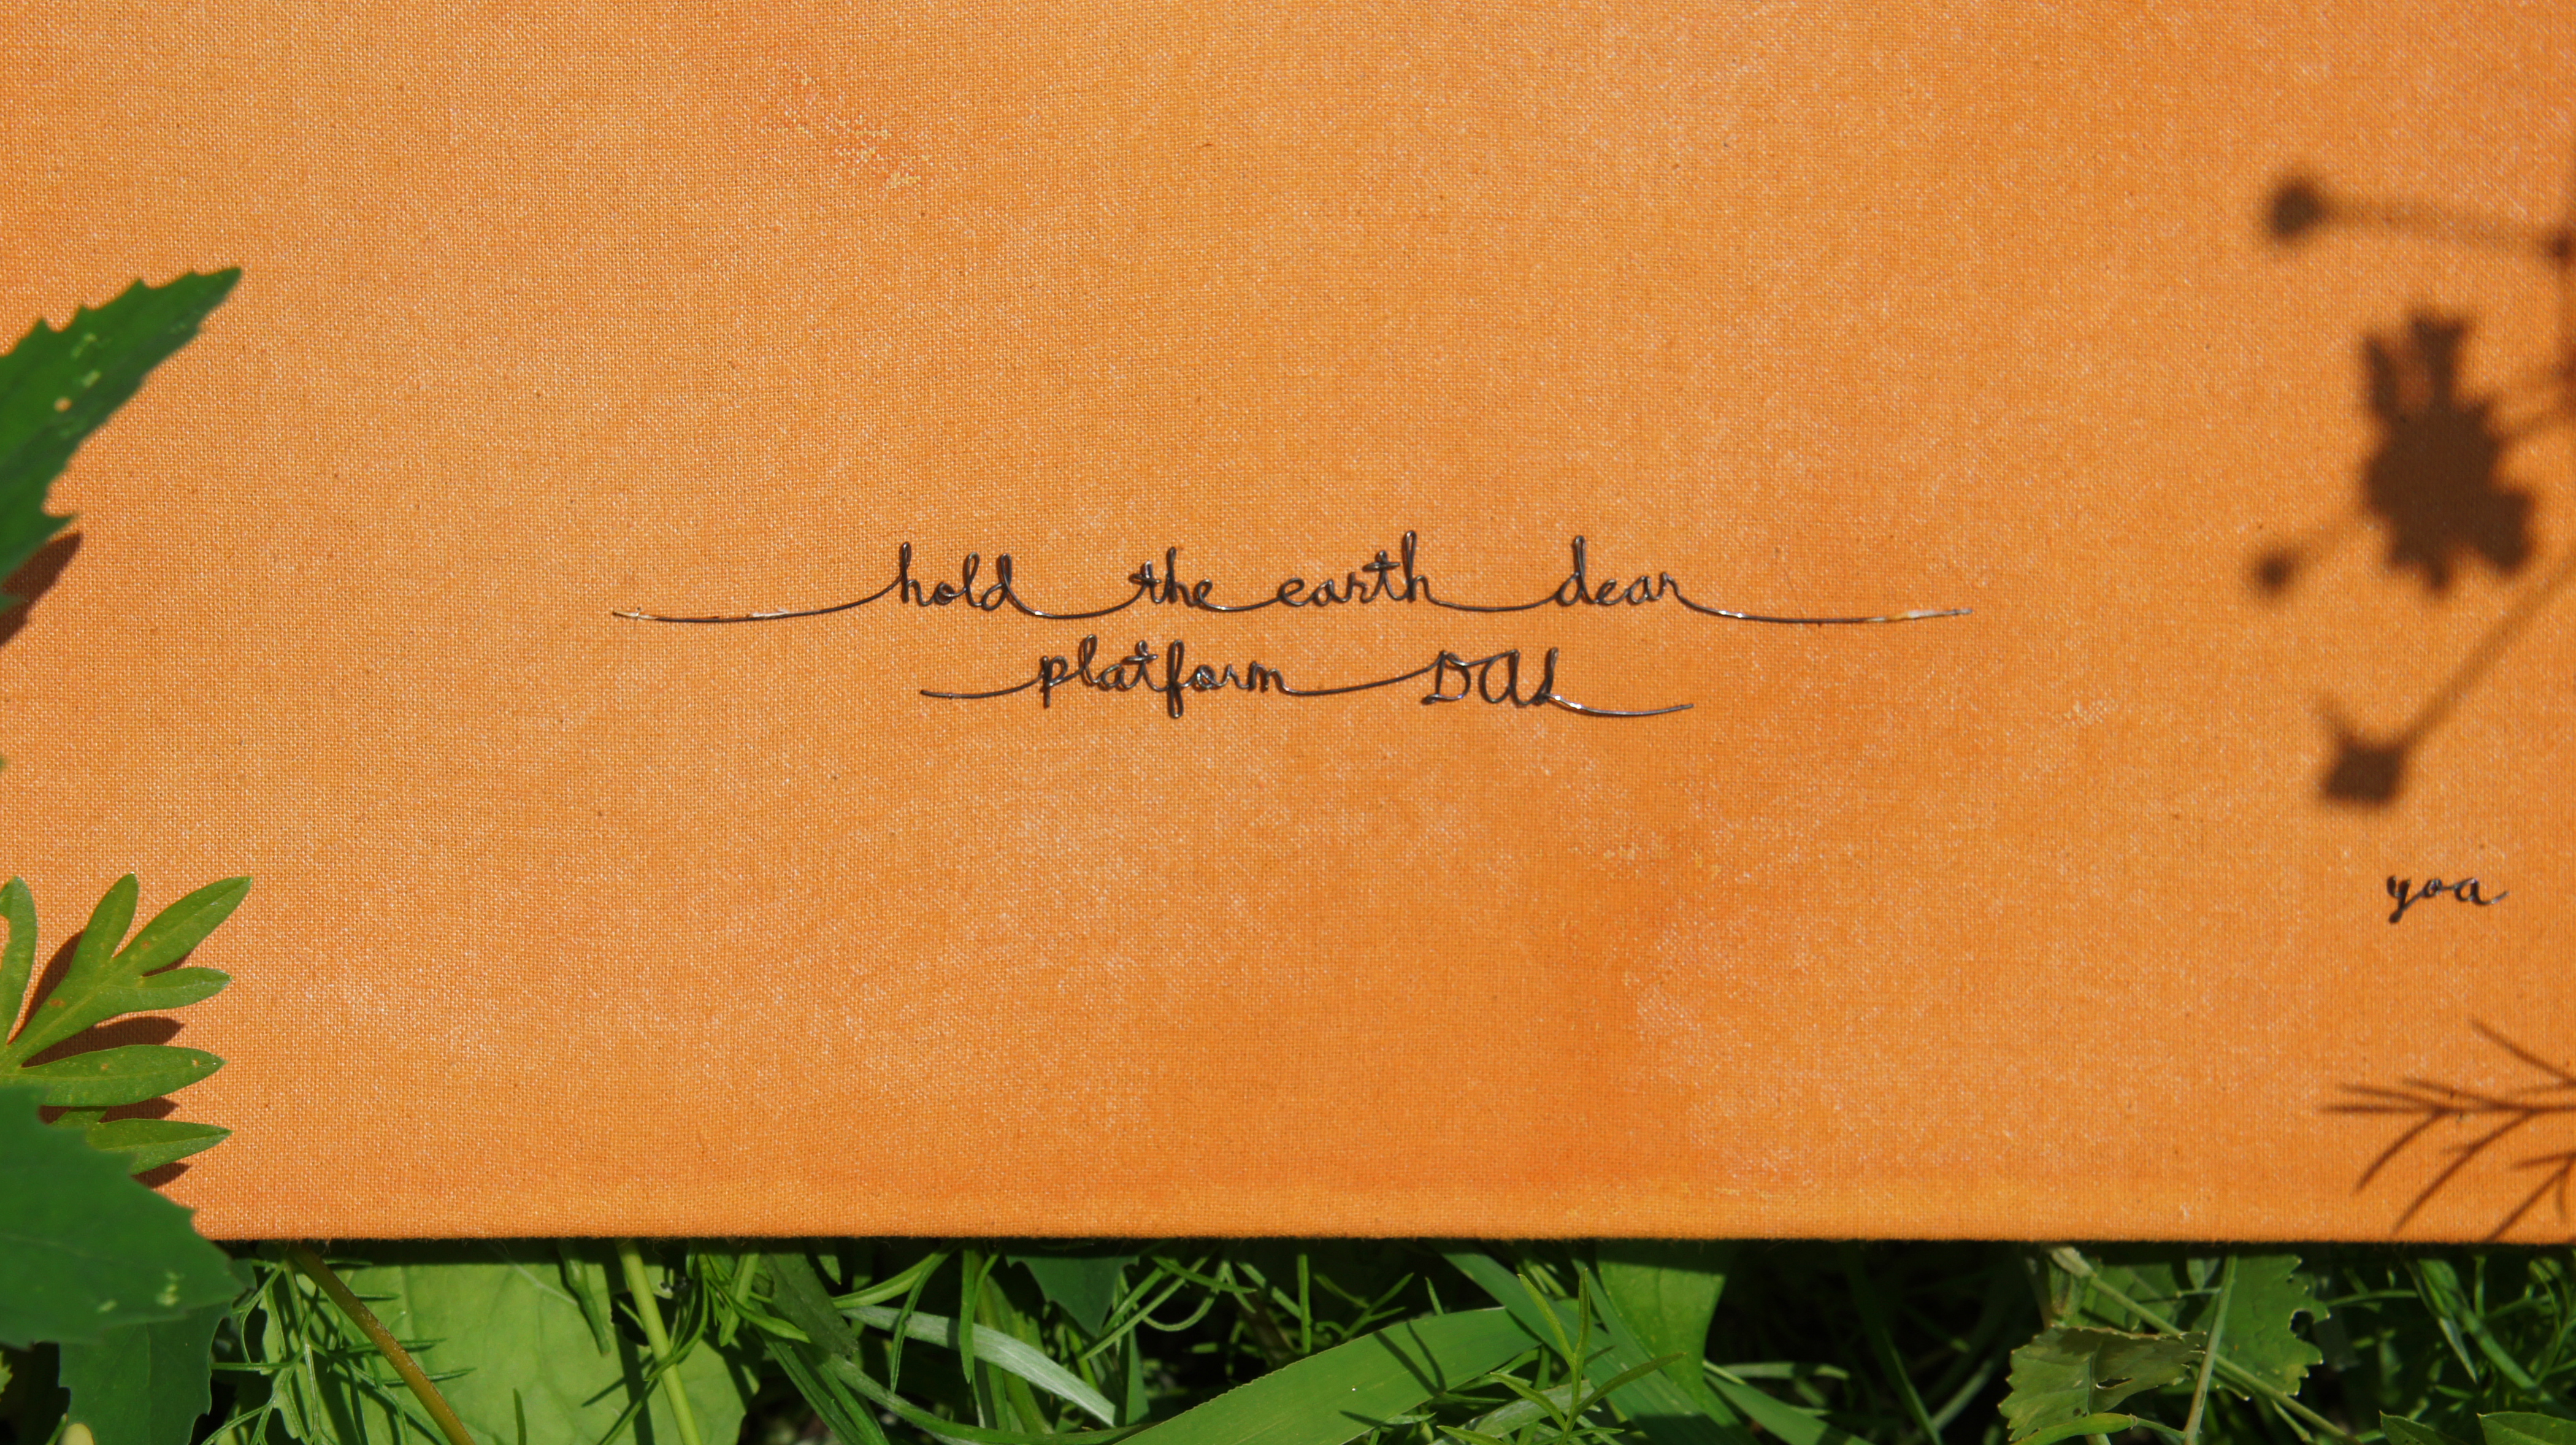 hold the earth dear
platform DAL
yoa